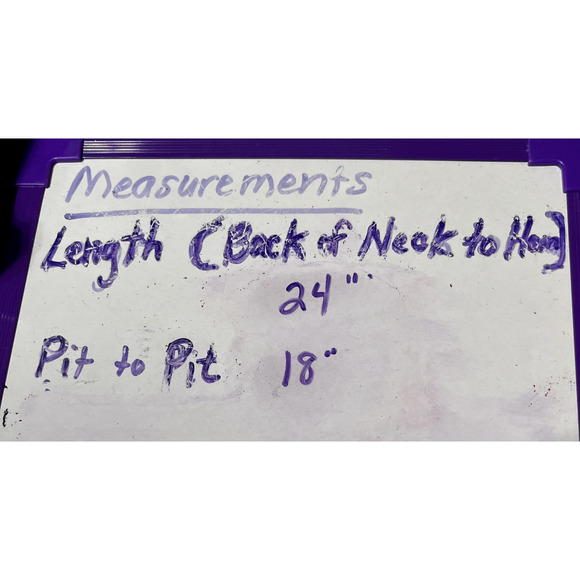 Measurements
Length (Back of Neck to Hem)
24"
Pit to Pit 18"